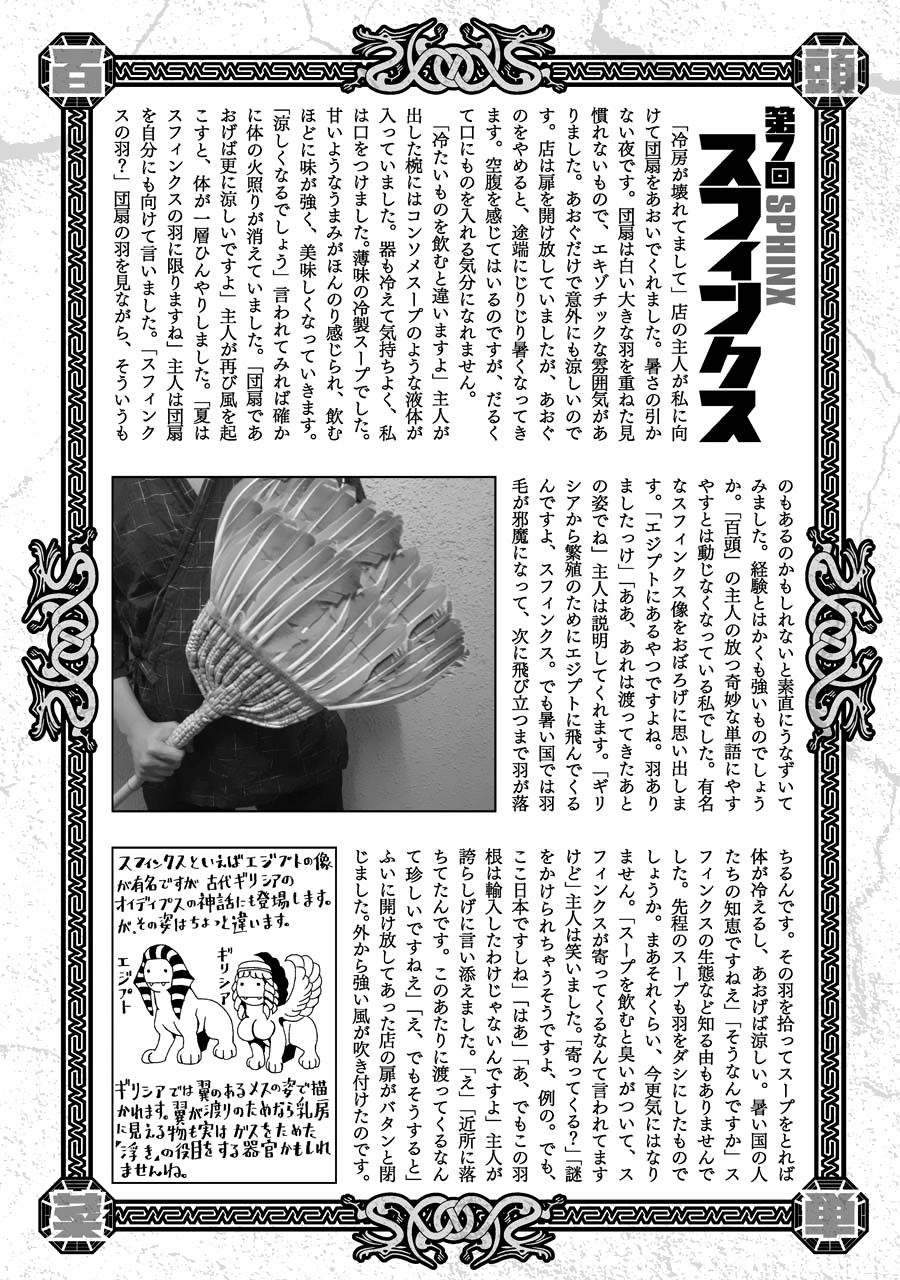 百頭
菜単
第7回 SPHINX
スフィンクス
「冷房が壊れてまして」店の主人が私に向
けて団扇をあおいでくれました。暑さの引か
ない夜です。団扇は白い大きな羽を重ねた見
慣れないもので、エキゾチックな雰囲気があ
りました。あおぐだけで意外にも涼しいので
す。店は扉を開け放していましたが、あおぐ
のをやめると、途端にじりじり暑くなってき
ます。空腹を感じてはいるのですが、だるく
て口にものを入れる気分になれません。
「冷たいものを飲むと違いますよ」主人が
出した椀にはコンソメスープのような液体が
入っていました。器も冷えて気持ちよく、私
は口をつけました。薄味の冷製スープでした。
甘いようなうまみがほんのり感じられ、飲む
ほどに味が強く、美味しくなっていきます。
「涼しくなるでしょう」言われてみれば確か
に体の火照りが消えていました。「団扇であ
おげば更に涼しいですよ」主人が再び風を起
こすと、体が一層ひんやりしました。「夏は
スフィンクスの羽に限りますね」主人は団扇
を自分にも向けて言いました。「スフィンク
スの羽？」団扇の羽を見ながら、そういうも
のもあるのかもしれないと素直にうなずいて
みました。経験とはかくも強いものでしょう
か。「百頭」の主人の放つ奇妙な単語にやす
やすとは動じなくなっている私でした。有名
なスフィンクス像をおぼろげに思い出しま
す。「エジプトにあるやつですよね。羽あり
ましたっけ」「ああ、あれは渡ってきたあと
の姿でね」主人は説明してくれます。「ギリ
シアから繁殖のためにエジプトに飛んでくる
んですよ、スフィンクス。でも暑い国では羽
毛が邪魔になって、次に飛び立つまで羽が落
ちるんです。その羽を拾ってスープをとれば
体が冷えるし、あおげば涼しい。暑い国の人
たちの知恵ですねえ」「そうなんですか」ス
フィンクスの生態など知る由もありませんで
した。先程のスープも羽をダシにしたもので
しょうか。まあそれくらい、今更気にはなり
ません。「スープを飲むと臭いがついて、ス
フィンクスが寄ってくるなんて言われてます
けど」主人は笑いました。「寄ってくる？」「謎
をかけられちゃうそうですよ、例の。でも、
ここ日本ですしね」「はあ」「あ、でもこの羽
根は輸入したわけじゃないんですよ」主人が
誇らしげに言い添えました。「え」「近所に落
ちてたんです。このあたりに渡ってくるなん
て珍しいですねえ」「え、でもそうすると」
ふいに開け放してあった店の扉がバタンと閉
じました。外から強い風が吹き付けたのです。
スフィンクスといえばエジプトの像
が有名ですが 古代ギリシアの
オイディプスの神話にも登場します。
が、その姿はちょっと違います。
エジプト
ギリシア
ギリシアでは翼のあるメスの姿で描
かれます。翼が渡りのためなら乳房
に見える物も実は ガスをためた
「浮き」の役目をする器官かもしれ
ませんね。